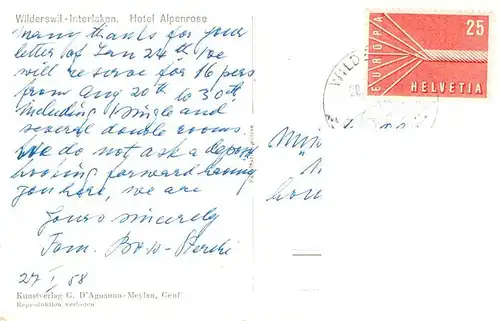 Wilderswil-Interlaken. Hotel Alpenrose
Many thanks for your
letter of Jan 24th. We
will reserve for 16 pers
from Aug 20th to 30th
including 1 single and
several double rooms.
We do not ask a deposit
Looking forward having
you here, we are
Yours sincerely
Fam.
27 I 58
Kunstverlag G. D'Aguanno-Meylan, Genf
Reproduktion verboten
EUROPA
25
HELVETIA